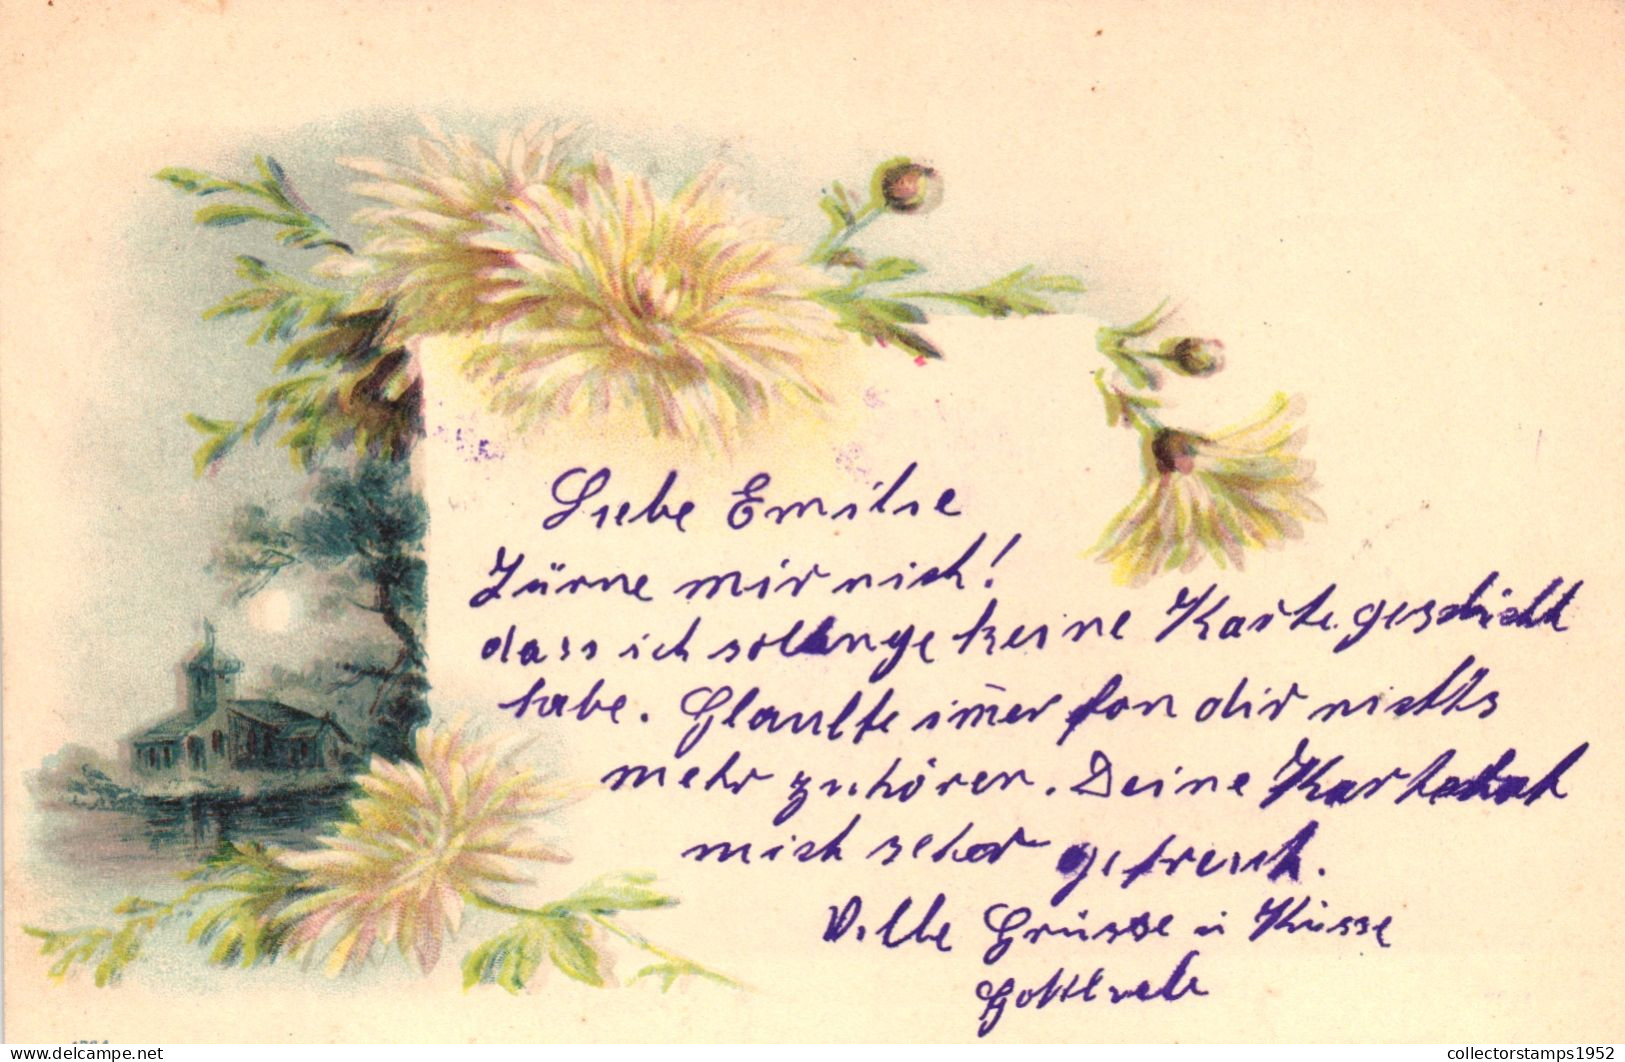 Liebe Emilie
Zürne mir nich!
dass ich sollange keine Karte geschickt
habe. Glaubte im̄er fon dir nichts
mehr zuhören. Deine Karte hat
mich sehr gefreut.
Viele Grüsse u Küsse
collectorstamps1952